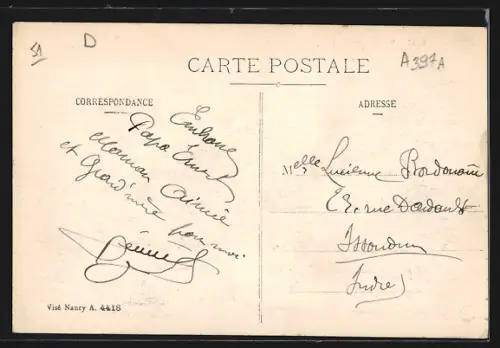 51
D
A397A
CARTE POSTALE
CORRESPONDANCE
Embrasse
Papa Ernest
Maman Aimée
et Grand'mère pour moi
ADRESSE
Melle Lucienne
rue Dardault
Issoudun
Indre
Visé Nancy A. 4418